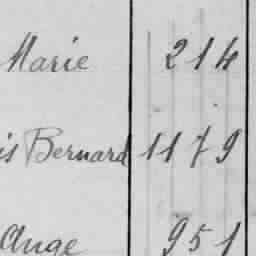 Marie 214
is Bernard 1179
Ange 951